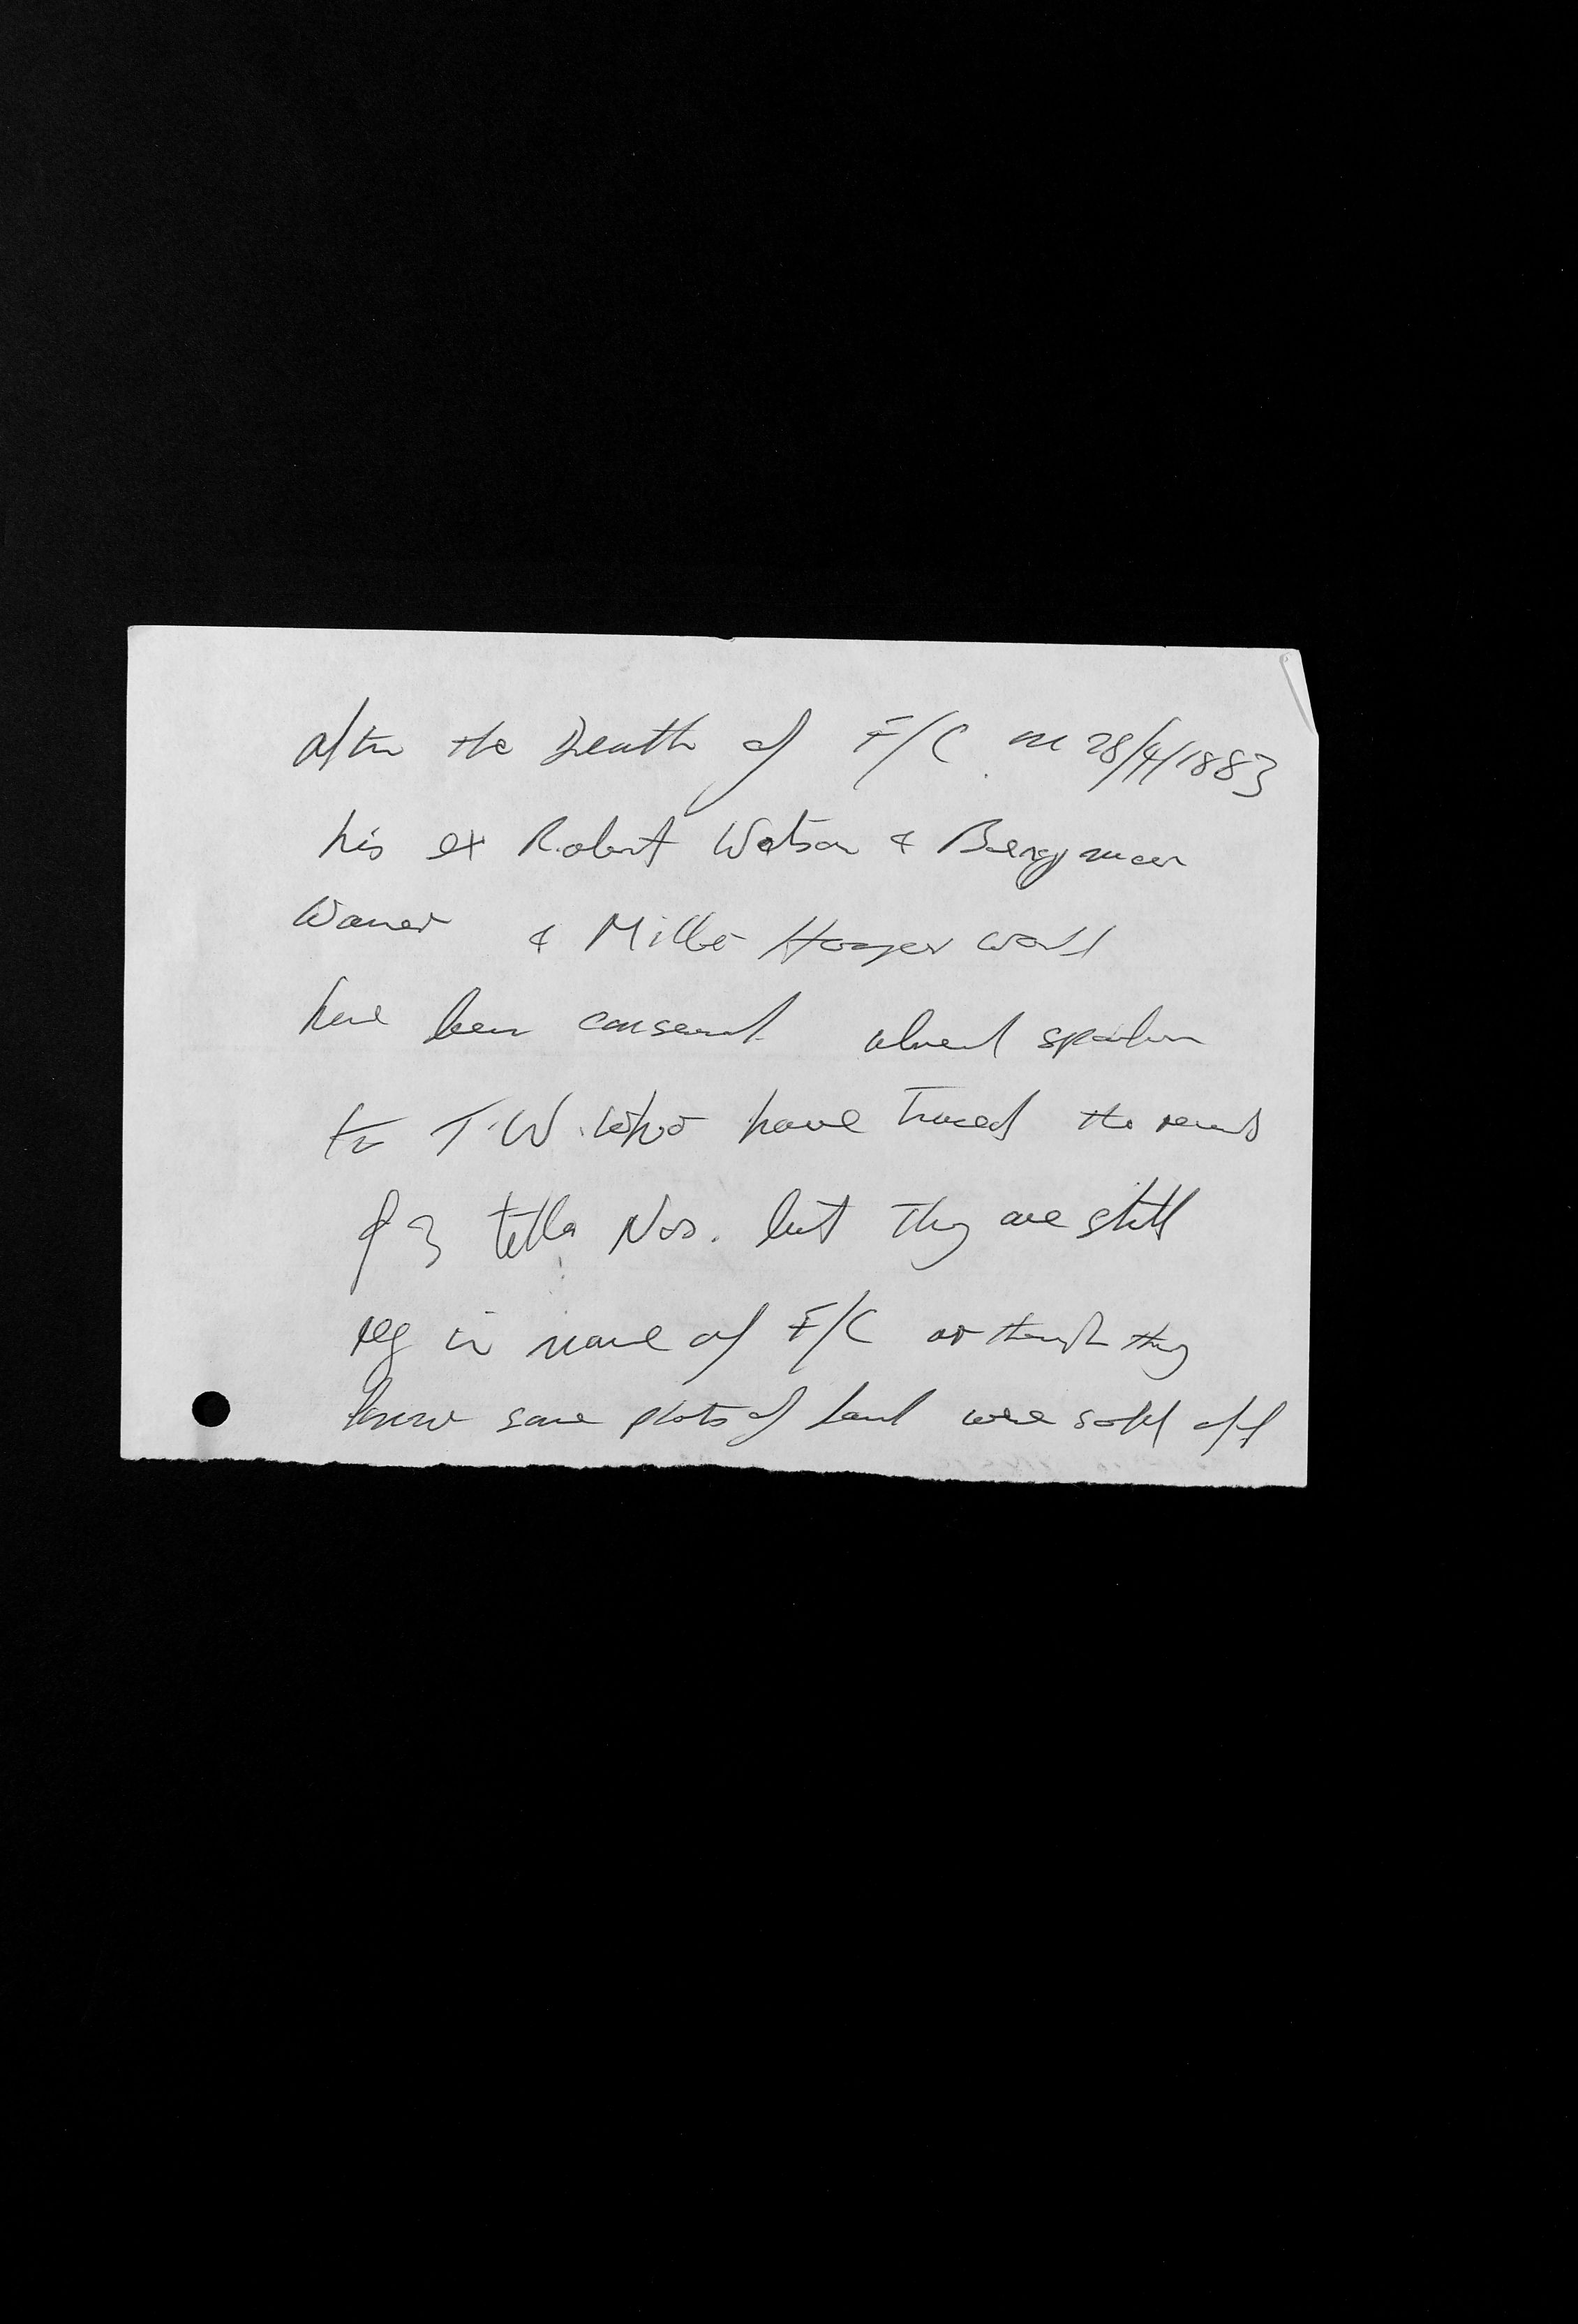 after the Death of F/C on 28/4/1883
his ex Robert Watson &
& Miller
have been already spoken
to T.W. who have traced the
of 3 title Nos. but they are still
reg in name of F/C as though they
know some plots of land were sold off